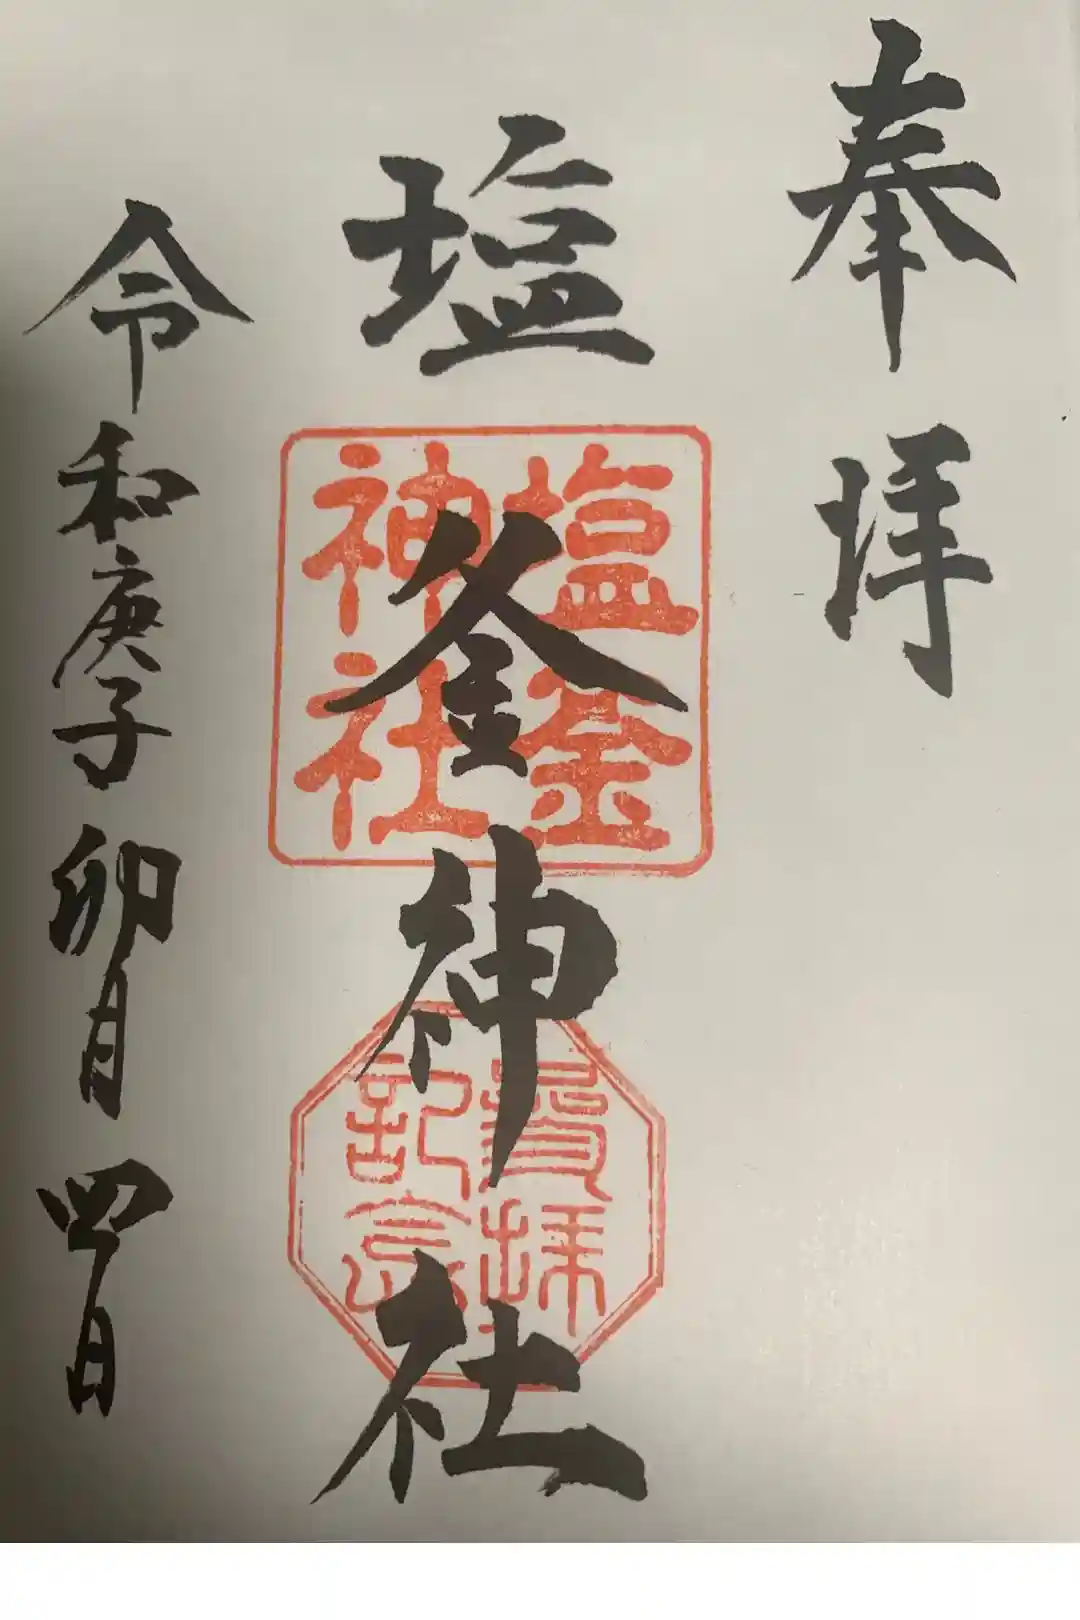 奉拝
塩釜神社
塩釜
神社
参拝
記念
令和庚子卯月四日